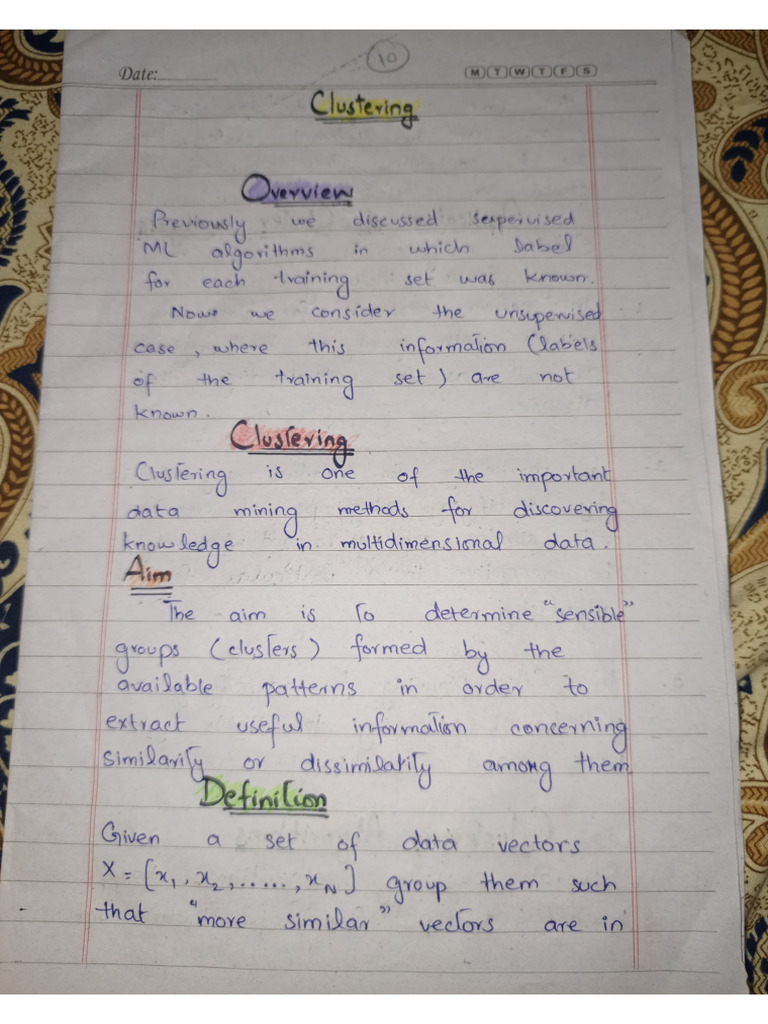 10
Date:
M T W T F S
Clustering
Overview
Previously we discussed supervised
ML algorithms in which label
for each training set was known.
Now we consider the unsupervised
case, where this information (labels
of the training set) are not
known.
Clustering
Clustering is one of the important
data mining methods for discovering
knowledge in multidimensional data.
Aim
The aim is to determine "sensible"
groups (clusters) formed by the
available patterns in order to
extract useful information concerning
similarity or dissimilarity among them
Definition
Given a set of data vectors
X = [x₁, x₂, ....., x_N] group them such
that "more similar" vectors are in